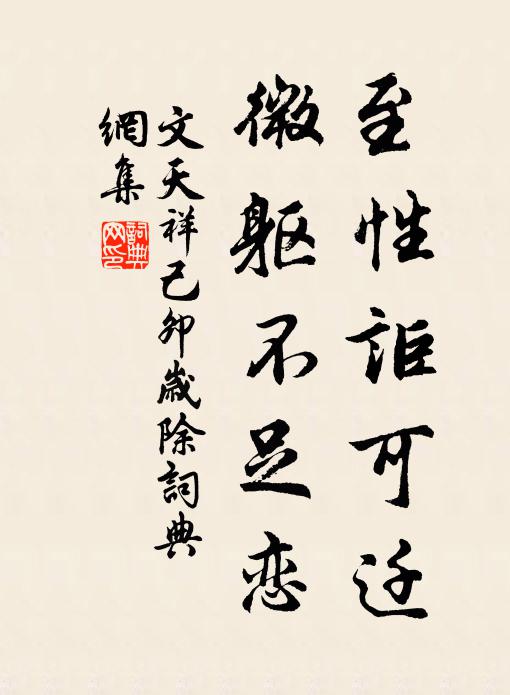 至性詎可迁
微躯不足恋
文天祥己卯歲除詞典
網集
詞典
网印